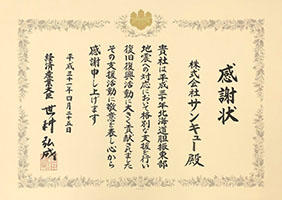 感謝状
株式会社サンキュー殿
貴社は平成三十年北海道胆振東部
地震への対応において格別な支援を行い
復旧復興活動に大きく貢献されました
その支援活動に敬意を表し心から
感謝申し上げます
平成三十一年四月二十五日
経済産業大臣 世耕弘成